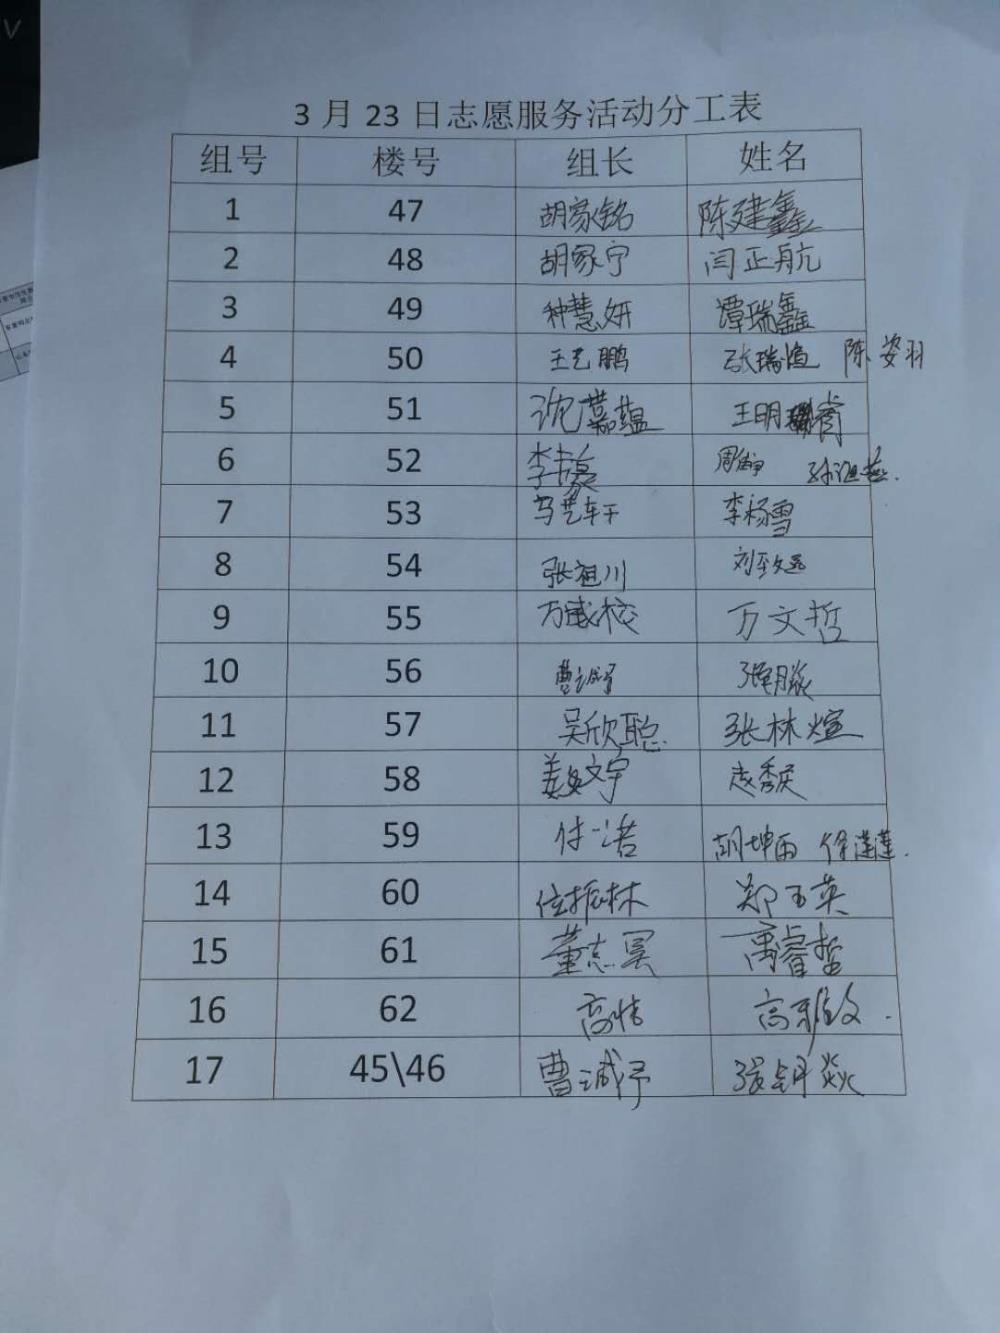 3月23日志愿服务活动分工表
组号 楼号 组长 姓名
1 47 胡家铭 陈建鑫
2 48 胡家宁 闫正航
3 49 种慧妍 谭瑞鑫
4 50 王艺鹏 张瑞 陈姿羽
5 51 沈嘉蕴 王明
6 52 李
7 53 马艺轩 李杨雪
8 54 张祖川 刘致远
9 55 万 万文哲
10 56 曹诚予
11 57 吴欣聪 张林煊
12 58 姜文宇
13 59 付一诺 胡坤雨 徐莲莲
14 60 位振林 郑玉英
15 61 董志昊 禹睿哲
16 62 高情 高雅文
17 45\46 曹诚予